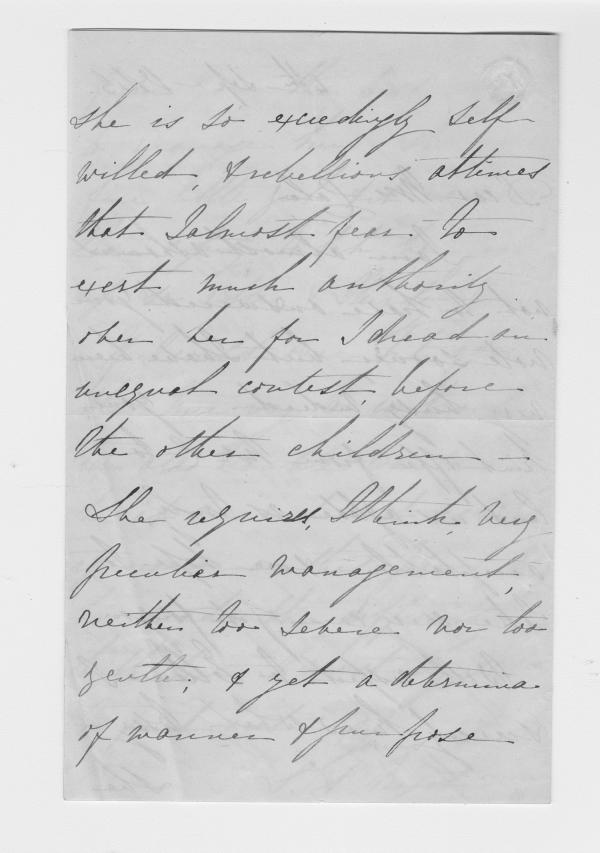 she is so exceedingly self
willed, & rebellious at times
that I almost fear to
exert much authority
over her for I dread an
unequal contest, before
the other children –
She requires, I think, very
peculiar management,
neither too severe nor too
gentle; & yet a determina
of manner & purpose